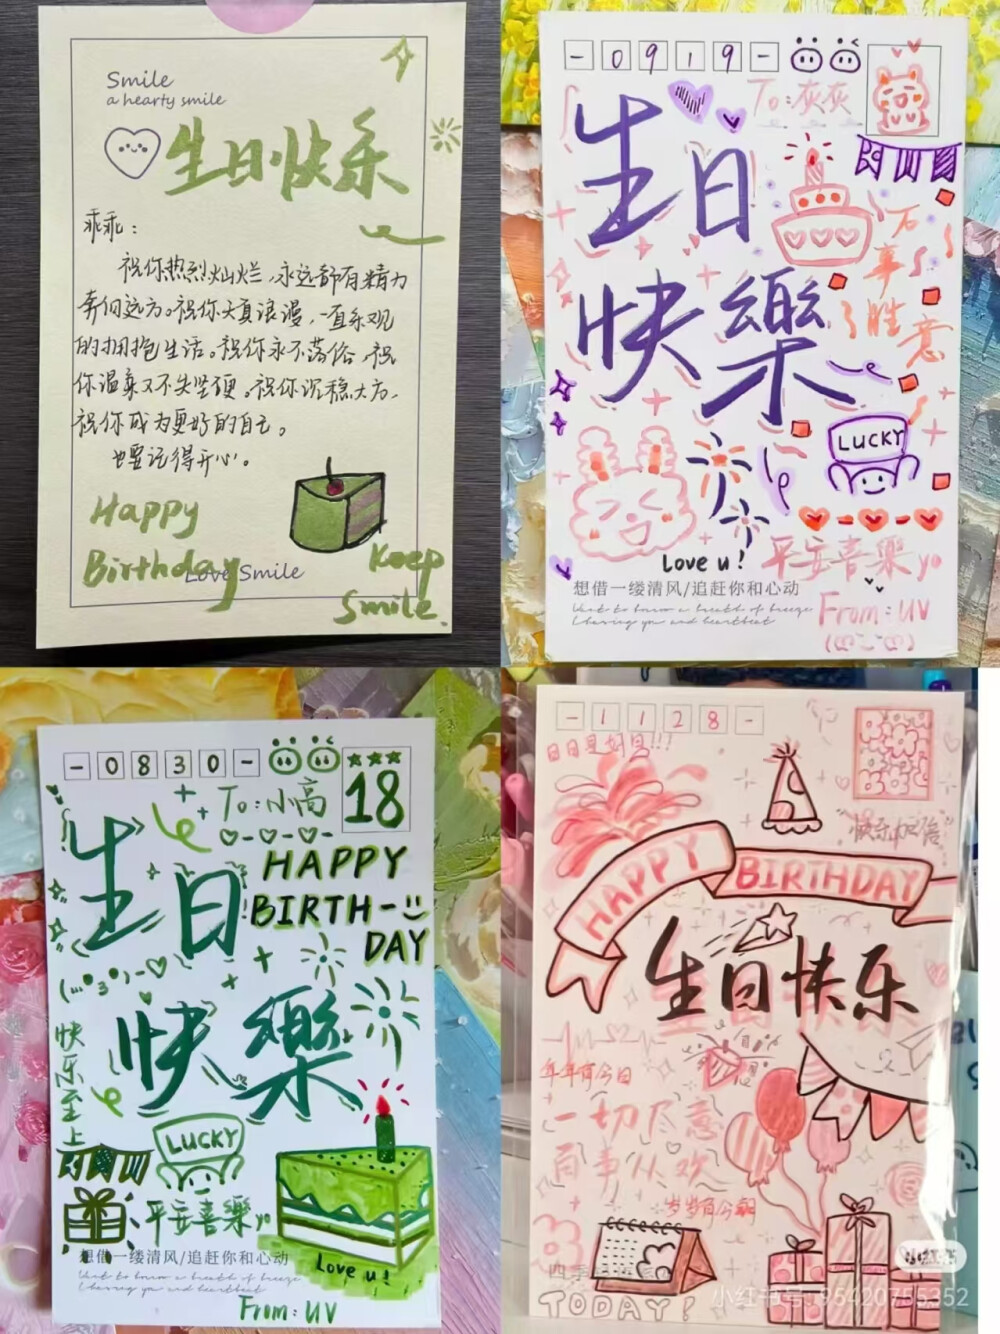 Smile
a hearty smile
生日快乐
乖乖：
祝你热烈灿烂，永远都有精力
奔向远方。祝你天真浪漫，一直乐观
的拥抱生活。祝你永不落俗，祝
你温柔又不失坚硬。祝你沉稳大方，
祝你成为更好的自己。
也要记得开心。
Happy
Birthday
Love Smile
Keep
Smile.
-0919-
To:灰灰
生日
快樂
万事胜意
LUCKY
Love u!
平安喜樂yo
想借一缕清风/追赶你和心动
Want to borrow a breath of breeze
Chasing you and heartbeat
From:UV
-0830-
To:小高
18
生日
HAPPY
BIRTH-
DAY
快樂
快乐至上
LUCKY
平安喜樂yo
想借一缕清风/追赶你和心动
Want to borrow a breath of breeze
Chasing you and heartbeat
Love u!
From:UV
-1128-
日日是好日!!!
"快乐加倍"
HAPPY BIRTHDAY
生日快乐
年年有今日
一切尽意
百事从欢
岁岁有今朝
TODAY!
小红书
小红书号:95420755352